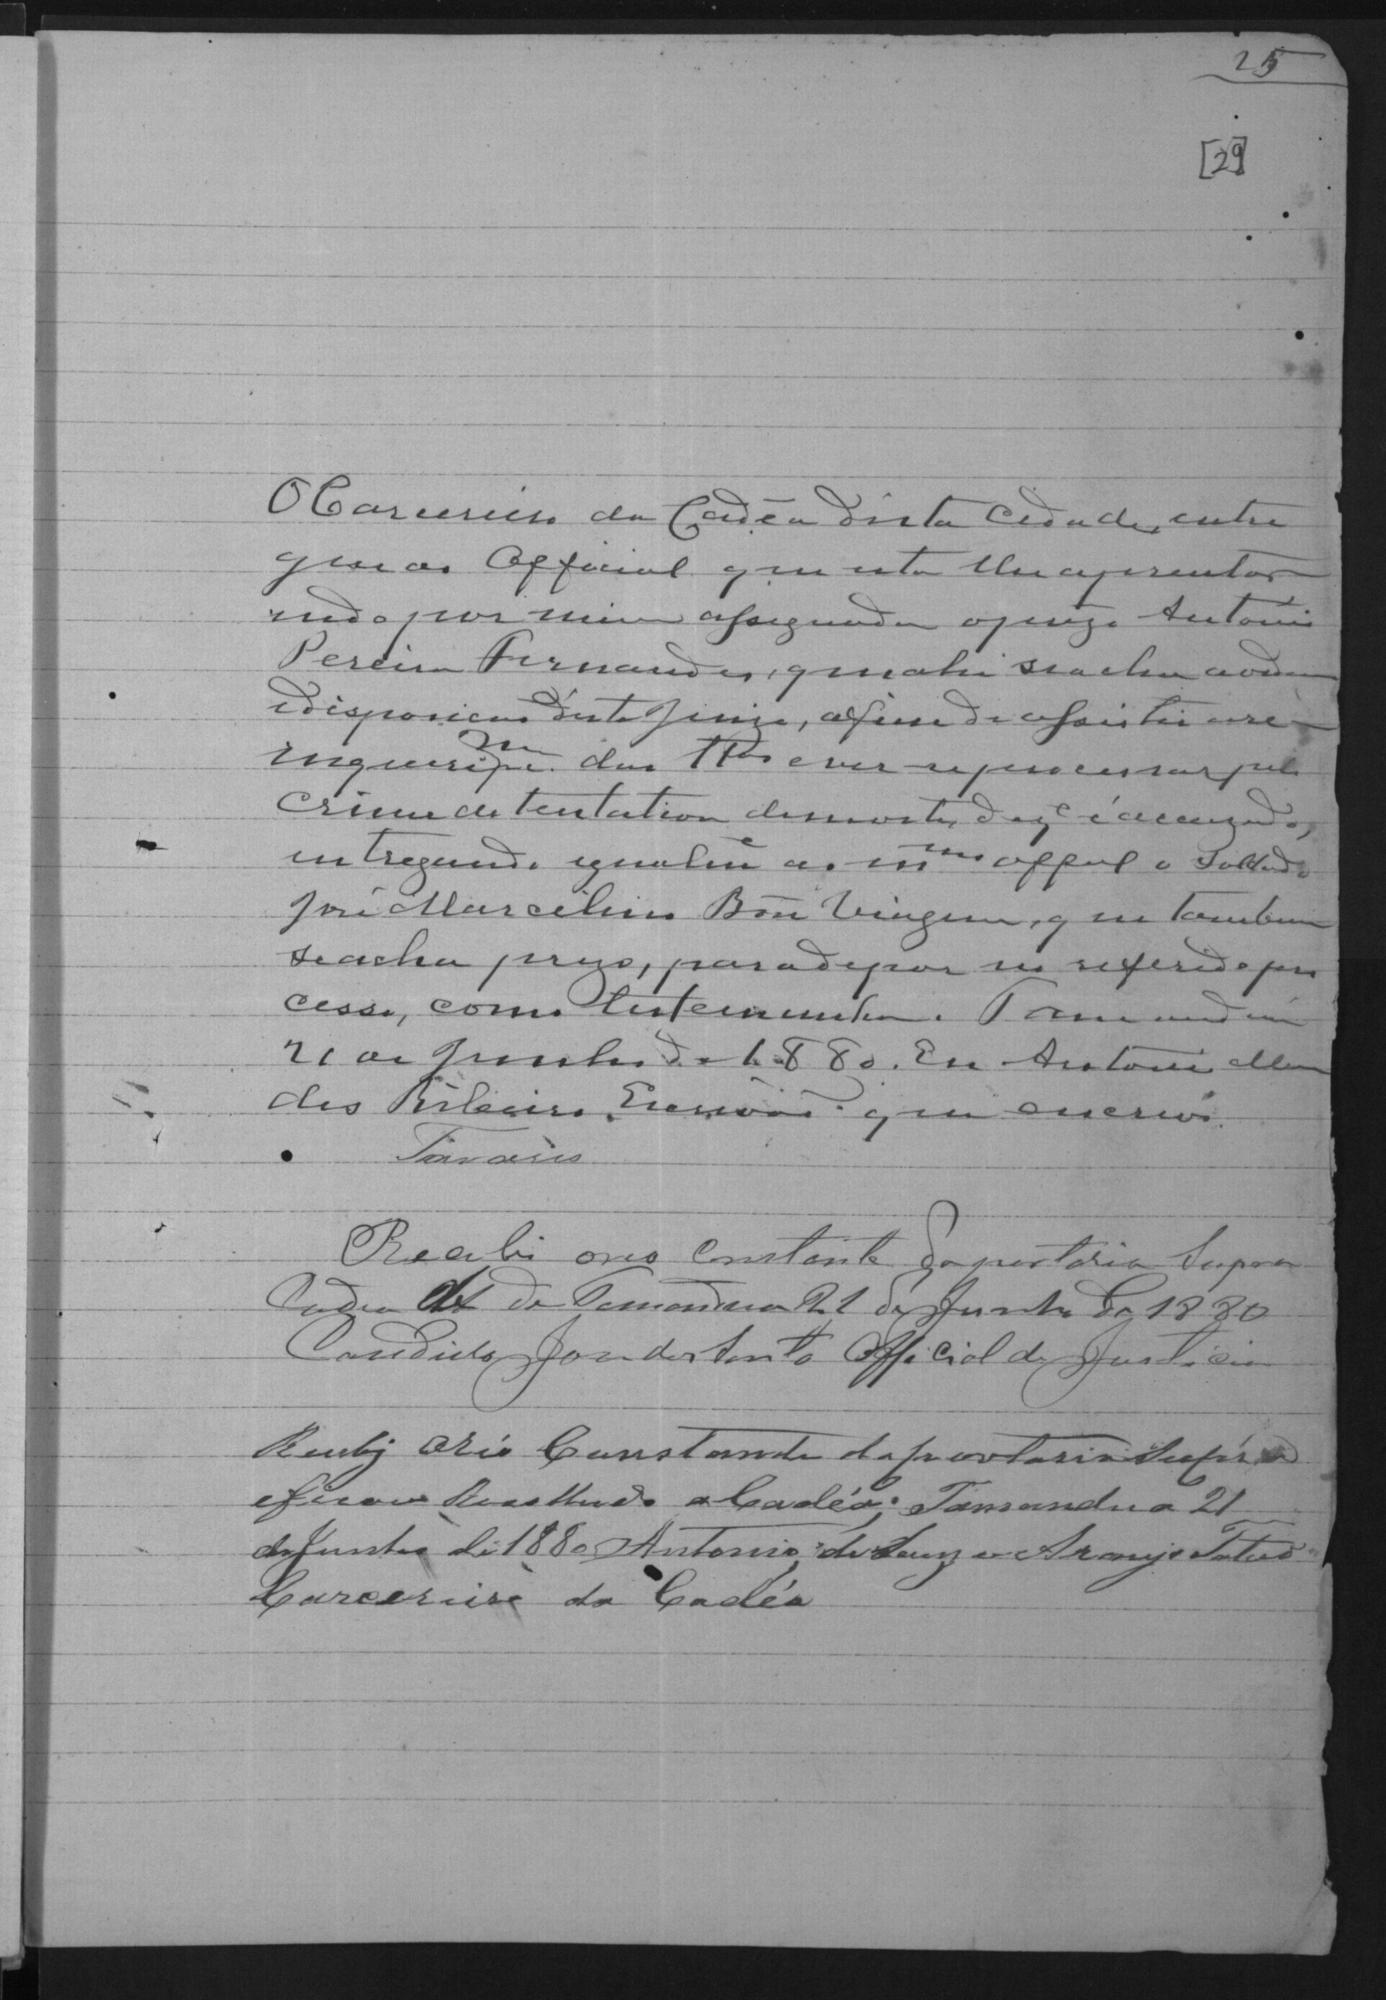 25
[29]
O Carcereiro da Cadêa d'esta Cidade, entre
gue ao Official que esta lhe aprezentar
indo por mim assignada o prezo Antonio
Pereira Fernandes, que ahi se acha a ordem
e disposicão d'este Juizo, afim de assistir a re
inqueripm. das TTas e ver-se processar pelo
crime de tentativa de morte, de qe é accuzado,
entregando igualme ao mmo offal o Soldado
José Marcelino Bôa Viagem, que tambem
se acha prezo, para depor no referido pro
cesso, como testemunha. Tamanduá
21 de Junho de 1880. Eu Antonio Men
des Ribeiro, Escrivão que escrevi.
Tavares
Recebi oreo Constante da portaria Supra
Cadea de Tamandua 21 de Junho de 1880
Candido José dos Santos Official de Justicia
Recebj oréo Constante da portaria Supra
e ficou Recolhido a Cadéa; Tamandua 21
de Junho de 1880 Antonio de Souza Araujo
Carcereiro da Cadéa